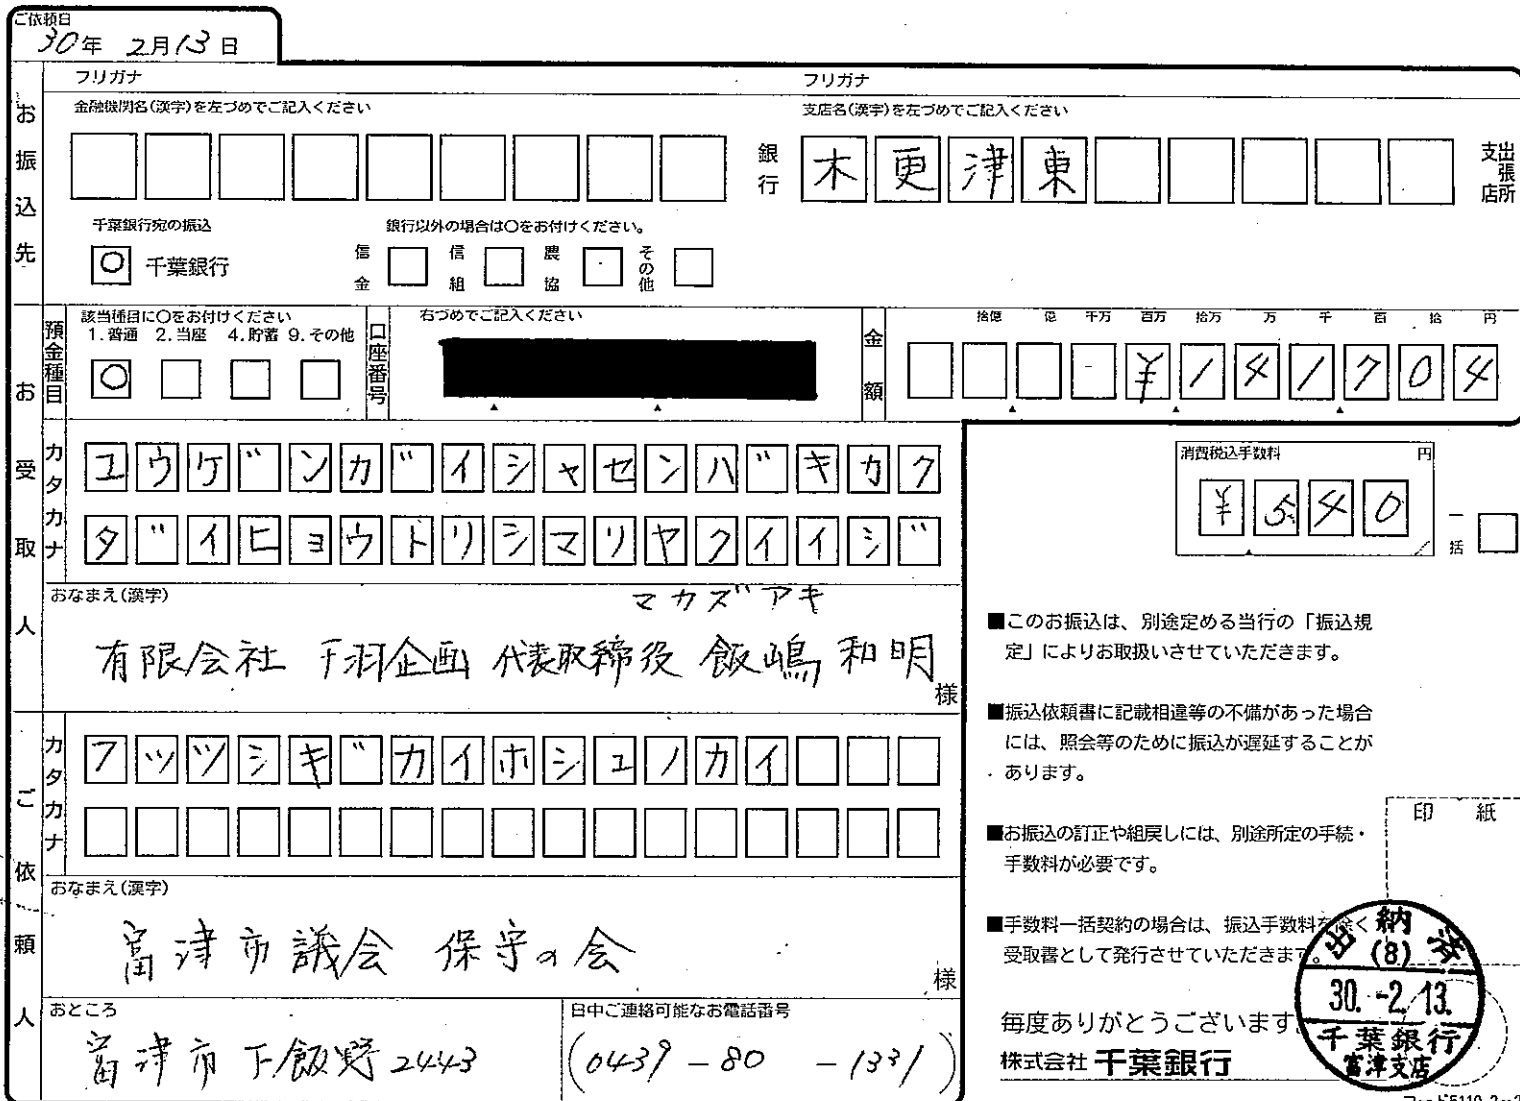 ご依頼日
30年 2月13日
お振込先
フリガナ
フリガナ
金融機関名(漢字)を左づめでご記入ください
支店名(漢字)を左づめでご記入ください
銀行
木更津東
支店
出張所
千葉銀行宛の振込
銀行以外の場合は〇をお付けください。
〇 千葉銀行
信金
信組
農協
その他
預金種目
該当種目に〇をお付けください
1.普通 2.当座 4.貯蓄 9.その他
〇
口座番号
右づめでご記入ください
金額
拾億 億 千万 百万 拾万 万 千 百 拾 円
¥141704
お受取人
カタカナ
ユウゲンガイシャセンバキカク
ダイヒョウドリシマリヤクイイジ
マカズアキ
おなまえ(漢字)
有限会社 千羽企画 代表取締役 飯嶋和明
様
消費税込手数料 円
¥540
一括
ご依頼人
カタカナ
フッツシギカイホシュノカイ
おなまえ(漢字)
富津市議会 保守の会
様
おところ
富津市下飯野2443
日中ご連絡可能なお電話番号
(0439-80-1331)
■このお振込は、別途定める当行の「振込規
定」によりお取扱いさせていただきます。
■振込依頼書に記載相違等の不備があった場合
には、照会等のために振込が遅延することが
あります。
■お振込の訂正や組戻しには、別途所定の手続・
手数料が必要です。
■手数料一括契約の場合は、振込手数料を除く
受取書として発行させていただきます。
印紙
毎度ありがとうございます
株式会社 千葉銀行
出納済
(8)
30.-2.13.
千葉銀行
富津支店